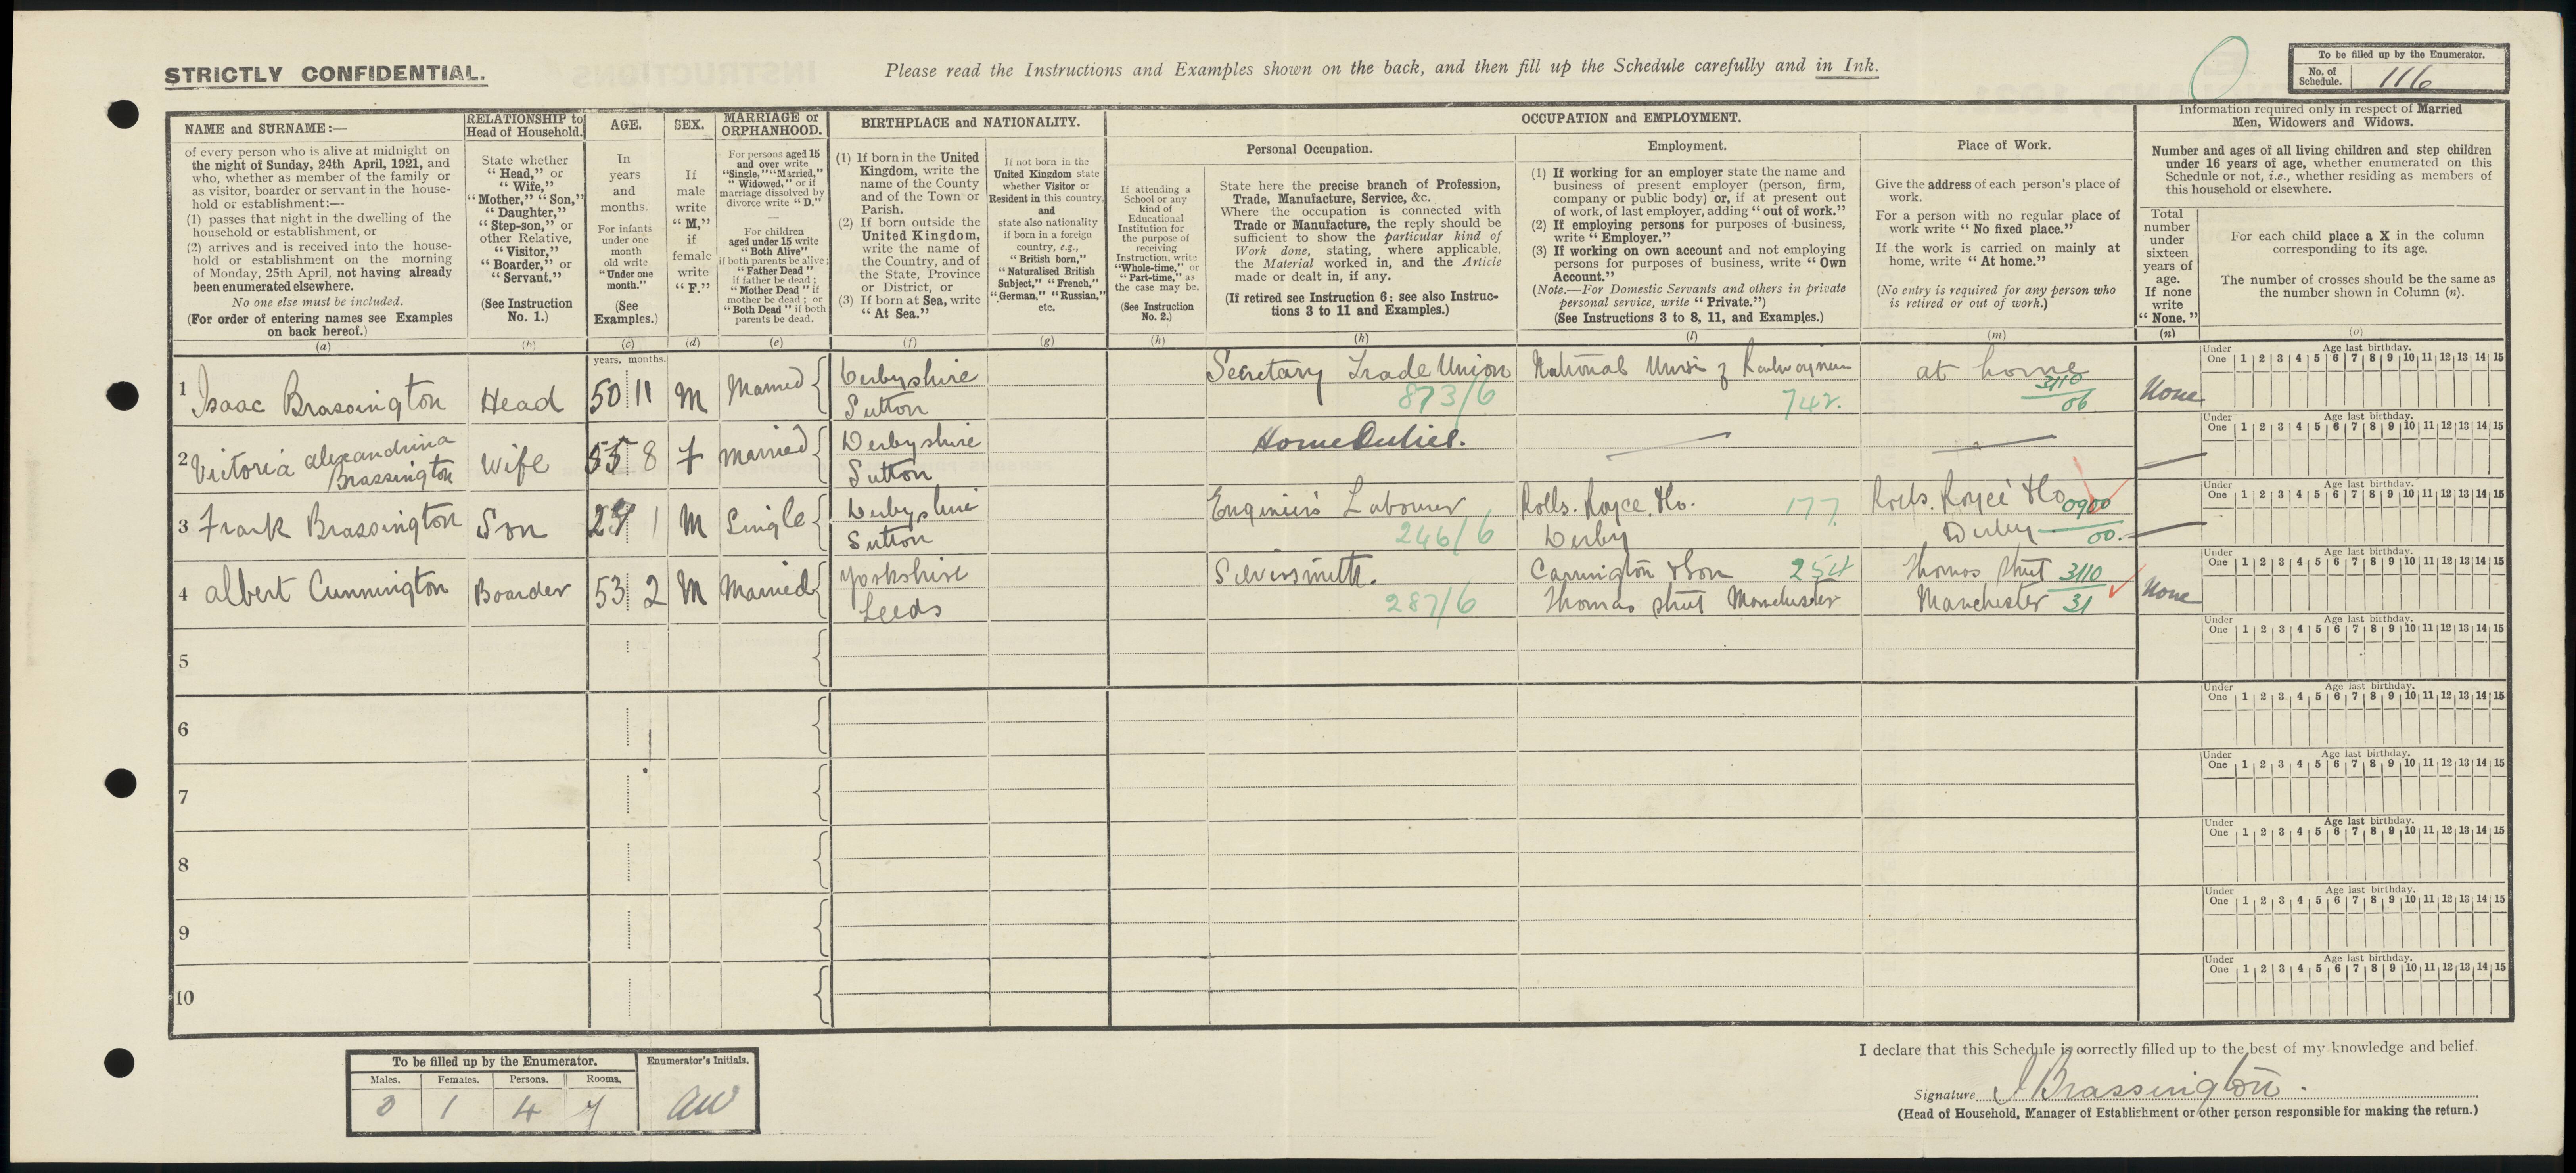 STRICTLY CONFIDENTIAL.
Please read the Instructions and Examples shown on the back, and then fill up the Schedule carefully and in Ink.
To be filled up by the Enumerator.
No. of Schedule. 116
NAME and SURNAME:—
of every person who is alive at midnight on
the night of Sunday, 24th April, 1921, and
who, whether as member of the family or
as visitor, boarder or servant in the house-
hold or establishment:—
(1) passes that night in the dwelling of the
household or establishment, or
(2) arrives and is received into the house-
hold or establishment on the morning
of Monday, 25th April, not having already
been enumerated elsewhere.
No one else must be included.
(For order of entering names see Examples
on back hereof.)
(a)
RELATIONSHIP to
Head of Household.
State whether
"Head," or
"Wife,"
"Mother," "Son,"
"Daughter,"
"Step-son," or
other Relative,
"Visitor,"
"Boarder," or
"Servant."
(See Instruction
No. 1.)
(b)
AGE.
In
years
and
months.
For infants
under one
month
old write
"Under one
month."
(See
Examples.)
(c)
SEX.
If
male
write
"M,"
if
female
write
"F."
(d)
MARRIAGE or
ORPHANHOOD.
For persons aged 15
and over write
"Single," "Married,"
"Widowed," or if
marriage dissolved by
divorce write "D."
—
For children
aged under 15 write
"Both Alive"
if both parents be alive;
"Father Dead"
if father be dead;
"Mother Dead" if
mother be dead; or
"Both Dead" if both
parents be dead.
(e)
BIRTHPLACE and NATIONALITY.
(1) If born in the United
Kingdom, write the
name of the County
and of the Town or
Parish.
(2) If born outside the
United Kingdom,
write the name of
the Country, and of
the State, Province
or District, or
(3) If born at Sea, write
"At Sea."
(f)
If not born in the
United Kingdom state
whether Visitor or
Resident in this country,
and
state also nationality
if born in a foreign
country, e.g.,
"British born,"
"Naturalised British
Subject," "French,"
"German," "Russian,"
etc.
(g)
OCCUPATION and EMPLOYMENT.
If attending a
School or any
kind of
Educational
Institution for
the purpose of
receiving
Instruction, write
"Whole-time," or
"Part-time," as
the case may be.
(See Instruction
No. 2.)
(h)
Personal Occupation.
State here the precise branch of Profession,
Trade, Manufacture, Service, &c.
Where the occupation is connected with
Trade or Manufacture, the reply should be
sufficient to show the particular kind of
Work done, stating, where applicable,
the Material worked in, and the Article
made or dealt in, if any.
(If retired see Instruction 6; see also Instruc-
tions 3 to 11 and Examples.)
(k)
Employment.
(1) If working for an employer state the name and
business of present employer (person, firm,
company or public body) or, if at present out
of work, of last employer, adding "out of work."
(2) If employing persons for purposes of business,
write "Employer."
(3) If working on own account and not employing
persons for purposes of business, write "Own
Account."
(Note.—For Domestic Servants and others in private
personal service, write "Private.")
(See Instructions 3 to 8, 11, and Examples.)
(l)
Place of Work.
Give the address of each person's place of
work.
For a person with no regular place of
work write "No fixed place."
If the work is carried on mainly at
home, write "At home."
(No entry is required for any person who
is retired or out of work.)
(m)
Information required only in respect of Married
Men, Widowers and Widows.
Number and ages of all living children and step children
under 16 years of age, whether enumerated on this
Schedule or not, i.e., whether residing as members of
this household or elsewhere.
Total
number
under
sixteen
years of
age.
If none
write
"None."
(n)
For each child place a X in the column
corresponding to its age.
The number of crosses should be the same as
the number shown in Column (n).
(o)
years. months.
1 Isaac Brassington Head 50 11 M Married Derbyshire Sutton Secretary Trade Union 873/6 National Union of Railwaymen 742. at home 3110 06 None
Under One Age last birthday. 1 2 3 4 5 6 7 8 9 10 11 12 13 14 15
2 Victoria alexandrina Brassington Wife 8 F Married Derbyshire Sutton Home Duties. — — —
Under One Age last birthday. 1 2 3 4 5 6 7 8 9 10 11 12 13 14 15
3 Frank Brassington Son 1 M Single Derbyshire Sutton Engineers Labourer 246/6 Rolls. Royce. &Co. Derby 177. Rolls. Royce &Co Derby 0900 00. —
Under One Age last birthday. 1 2 3 4 5 6 7 8 9 10 11 12 13 14 15
4 albert Cunnington Boarder 53 2 M Married Yorkshire Leeds Silversmith. 287/6 Carrington &Son 254 Thomas street Manchester Thomas street Manchester 3110 31 None
Under One Age last birthday. 1 2 3 4 5 6 7 8 9 10 11 12 13 14 15
5
Under One Age last birthday. 1 2 3 4 5 6 7 8 9 10 11 12 13 14 15
6
Under One Age last birthday. 1 2 3 4 5 6 7 8 9 10 11 12 13 14 15
7
Under One Age last birthday. 1 2 3 4 5 6 7 8 9 10 11 12 13 14 15
8
Under One Age last birthday. 1 2 3 4 5 6 7 8 9 10 11 12 13 14 15
9
Under One Age last birthday. 1 2 3 4 5 6 7 8 9 10 11 12 13 14 15
10
Under One Age last birthday. 1 2 3 4 5 6 7 8 9 10 11 12 13 14 15
To be filled up by the Enumerator.
Males. Females. Persons. Rooms.
3 1 4 7
Enumerator's Initials.
AW
I declare that this Schedule is correctly filled up to the best of my knowledge and belief.
Signature I Brassington.
(Head of Household, Manager of Establishment or other person responsible for making the return.)